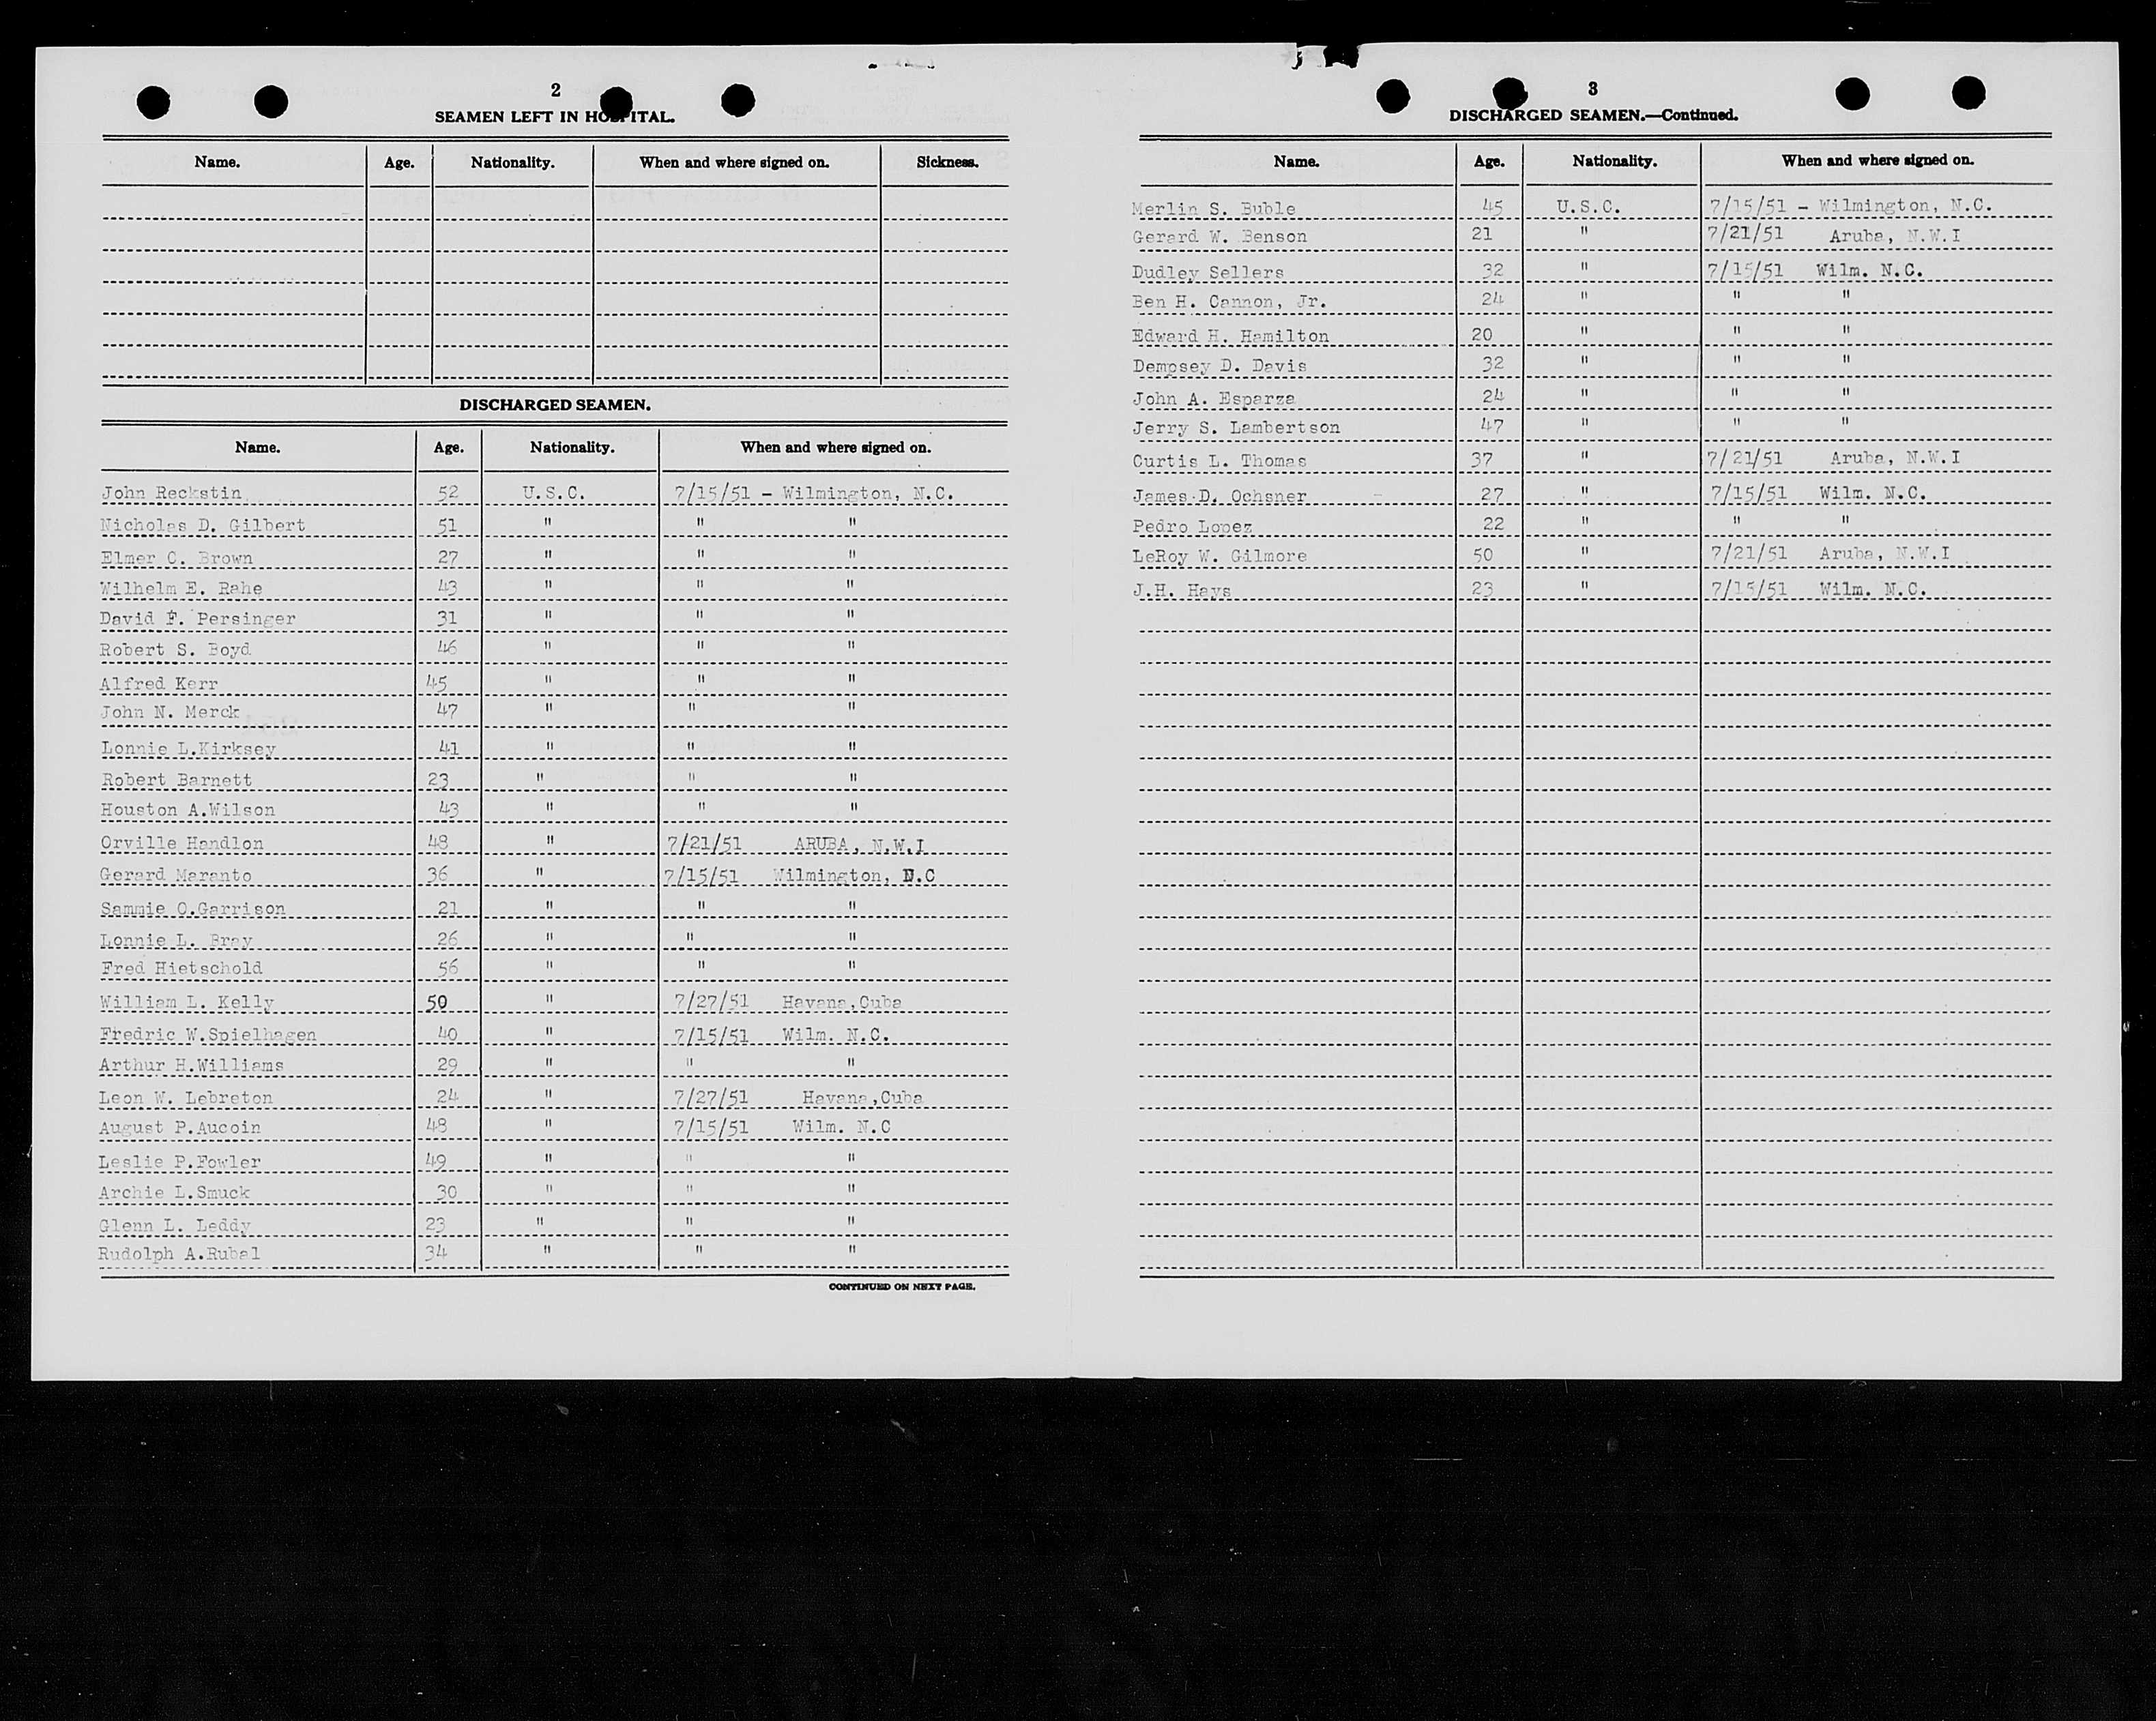 2
SEAMEN LEFT IN HOSPITAL.
Name. Age. Nationality. When and where signed on. Sickness.
DISCHARGED SEAMEN.
Name. Age. Nationality. When and where signed on.
John Reckstin 52 U.S.C. 7/15/51 - Wilmington, N.C.
Nicholas D. Gilbert 51 " " "
Elmer C. Brown 27 " " "
Wilhelm E. Rahe 43 " " "
David F. Persinger 31 " " "
Robert S. Boyd 46 " " "
Alfred Kerr 45 " " "
John N. Merck 47 " " "
Lonnie L.Kirksey 41 " " "
Robert Barnett 23 " " "
Houston A.Wilson 43 " " "
Orville Handlon 48 " 7/21/51 ARUBA, N.W.I
Gerard Maranto 36 " 7/15/51 Wilmington, N.C
Sammie O.Garrison 21 " " "
Lonnie L. Bray 26 " " "
Fred Hietschold 56 " " "
William L. Kelly 50 " 7/27/51 Havana,Cuba
Fredric W.Spielhagen 40 " 7/15/51 Wilm. N.C.
Arthur H.Williams 29 " " "
Leon W. Lebreton 24 " 7/27/51 Havana,Cuba
August P.Aucoin 48 " 7/15/51 Wilm. N.C
Leslie P.Fowler 49 " " "
Archie L.Smuck 30 " " "
Glenn L. Leddy 23 " " "
Rudolph A.Rubal 34 " " "
CONTINUED ON NEXT PAGE.
3
DISCHARGED SEAMEN.—Continued.
Name. Age. Nationality. When and where signed on.
Merlin S. Buble 45 U.S.C. 7/15/51 - Wilmington, N.C.
Gerard W. Benson 21 " 7/21/51 Aruba, N.W.I
Dudley Sellers 32 " 7/15/51 Wilm. N.C.
Ben H. Cannon, Jr. 24 " " "
Edward H. Hamilton 20 " " "
Dempsey D. Davis 32 " " "
John A. Esparza 24 " " "
Jerry S. Lambertson 47 " " "
Curtis L. Thomas 37 " 7/21/51 Aruba, N.W.I
James D. Ochsner 27 " 7/15/51 Wilm. N.C.
Pedro Lopez 22 " " "
LeRoy W. Gilmore 50 " 7/21/51 Aruba, N.W.I
J.H. Hays 23 " 7/15/51 Wilm. N.C.